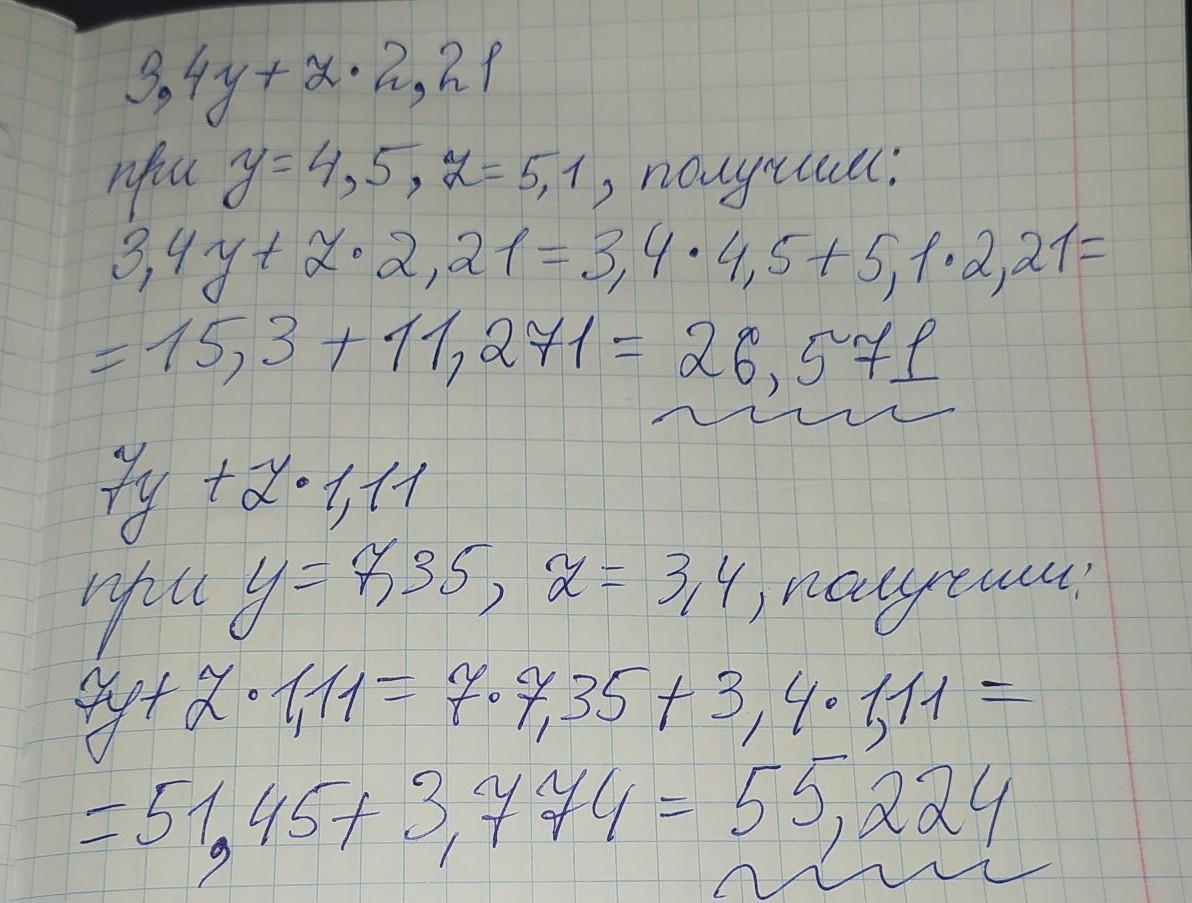 3,4y + z · 2,21
при y = 4,5, z = 5,1, получим:
3,4y + z · 2,21 = 3,4 · 4,5 + 5,1 · 2,21 =
= 15,3 + 11,271 = 26,571
7y + z · 1,11
при y = 7,35, z = 3,4, получим:
7y + z · 1,11 = 7 · 7,35 + 3,4 · 1,11 =
= 51,45 + 3,774 = 55,224